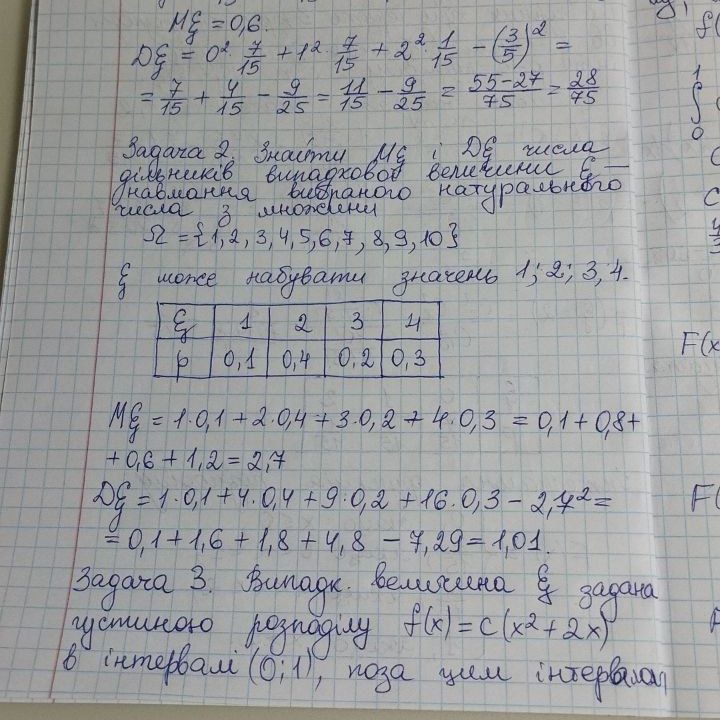 Mξ = 0,6.
Dξ = 0² · 7/15 + 1² · 7/15 + 2² · 1/15 − (3/5)² =
= 7/15 + 4/15 − 9/25 = 11/15 − 9/25 = 55−27/75 = 28/75
Задача 2. Знайти Mξ і Dξ числа
дільників випадкової величини ξ —
навмання вибраного натурального
числа з множини
Ω = {1, 2, 3, 4, 5, 6, 7, 8, 9, 10}
ξ може набувати значень 1; 2; 3; 4.
ξ 1 2 3 4
p 0,1 0,4 0,2 0,3
Mξ = 1·0,1 + 2·0,4 + 3·0,2 + 4·0,3 = 0,1 + 0,8 +
+ 0,6 + 1,2 = 2,7
Dξ = 1·0,1 + 4·0,4 + 9·0,2 + 16·0,3 − 2,7² =
= 0,1 + 1,6 + 1,8 + 4,8 − 7,29 = 1,01.
Задача 3. Випадк. величина ξ задана
густиною розподілу f(x) = c(x² + 2x)
в інтервалі (0; 1), поза цим інтервалом